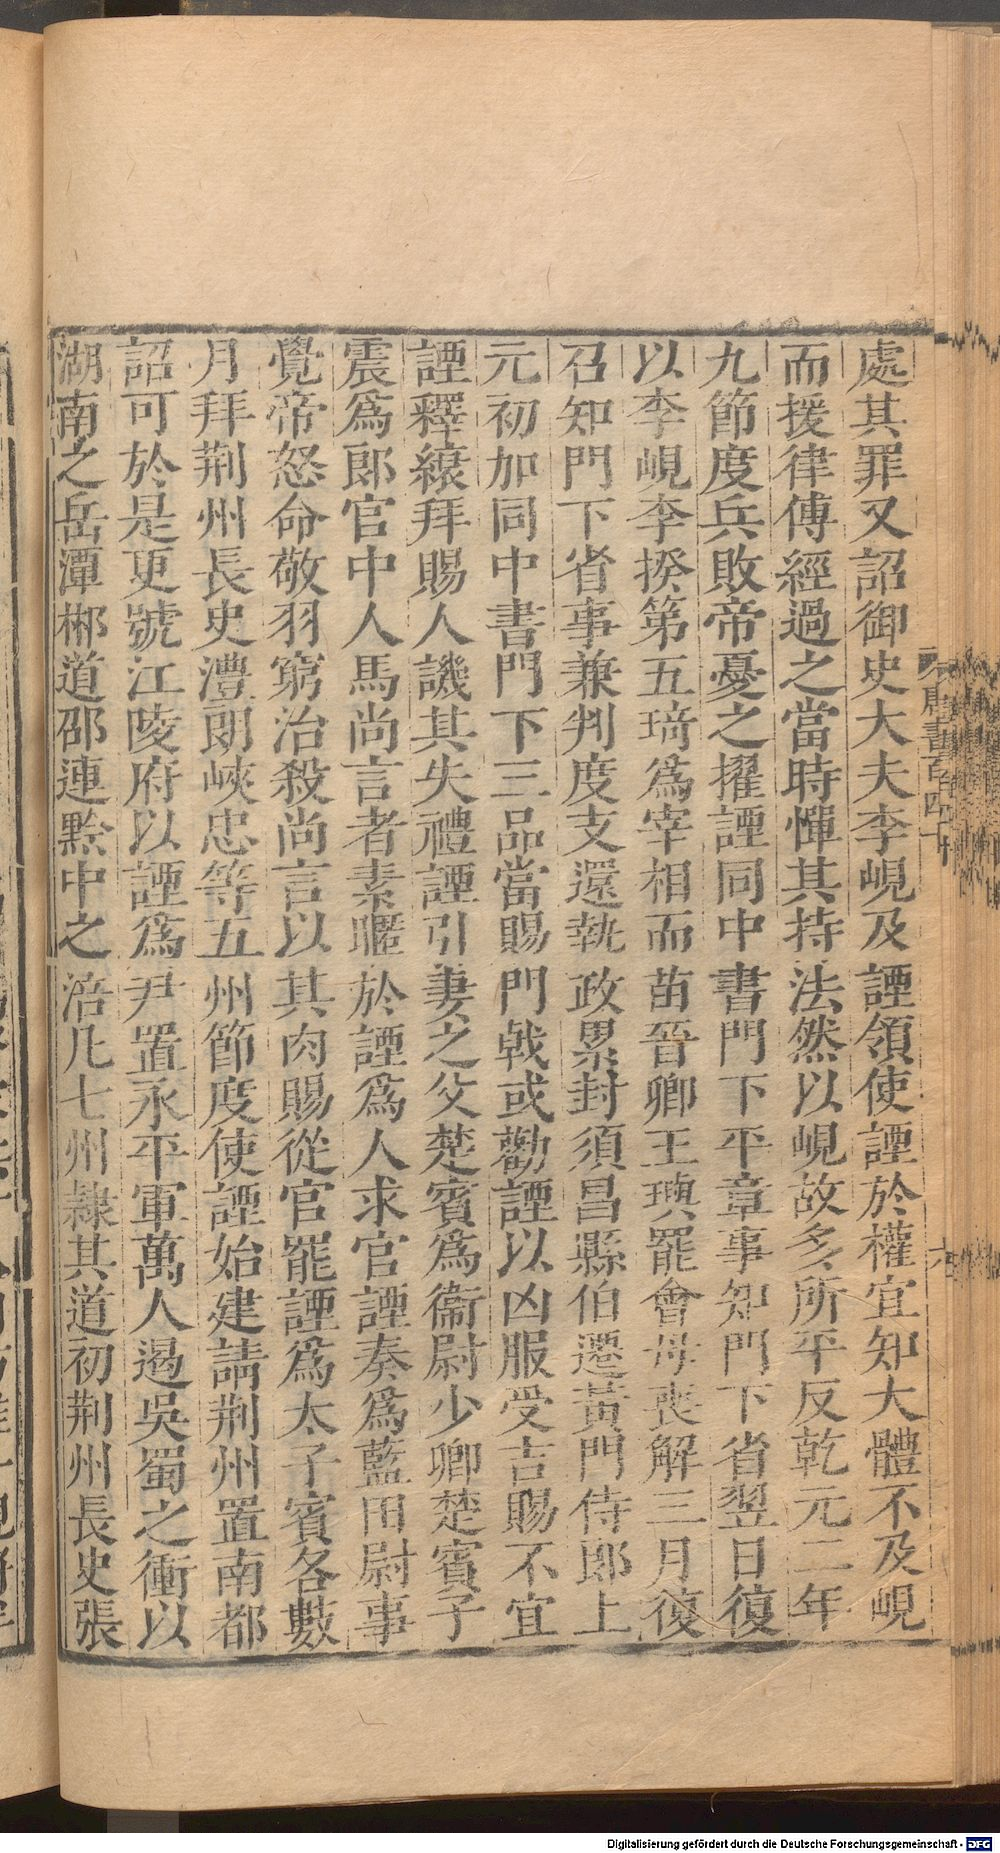 處其罪又詔御史大夫李峴及諲領使諲於權宜知大體不及峴
而援律傅經過之當時憚其持法然以峴故多所平反乾元二年
九節度兵敗帝憂之擢諲同中書門下平章事知門下省翌日復
以李峴李揆第五琦爲宰相而苗晉卿王璵罷會母喪解三月復
召知門下省事兼判度支還執政累封須昌縣伯遷黃門侍郎上
元初加同中書門下三品當賜門戟或勸諲以凶服受吉賜不宜
諲釋縗拜賜人譏其失禮諲引妻之父楚賓爲衞尉少卿楚賓子
震爲郎官中人馬尚言者素暱於諲爲人求官諲奏爲藍田尉事
覺帝怒命敬羽窮治殺尚言以其肉賜從官罷諲爲太子賓客數
月拜荆州長史澧朗峽忠等五州節度使諲始建請荆州置南都
詔可於是更號江陵府以諲爲尹置永平軍萬人遏吳蜀之衝以
湖南之岳潭郴道邵連黔中之涪凡七州隸其道初荆州長史張
唐書百四十
六
Digitalisierung gefördert durch die Deutsche Forschungsgemeinschaft - DFG